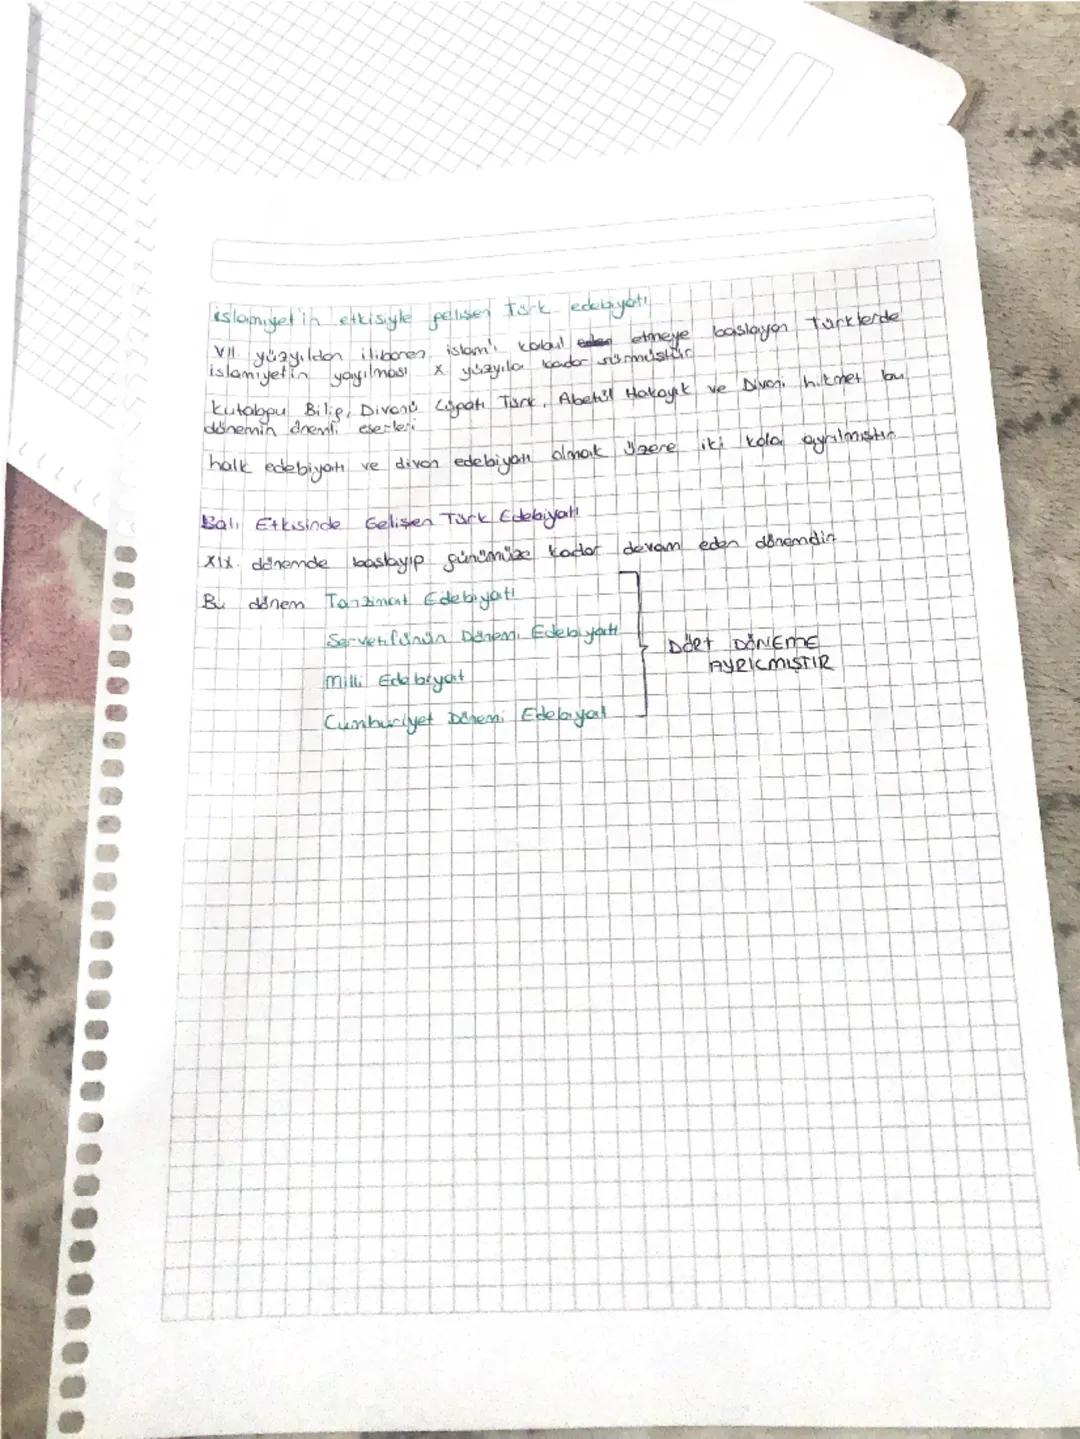 islamiyet'in etkisiyle gelişen Türk edebiyatı
VII. yüzyıldan itibaren islam'ı kabul etmeye başlayan Türklerde
islamiyetin yayılması X yüzyıla kadar sürmüştür
Kutabgu Bilig, Divanü Lügati Türk, Abetül Hakayık ve Divani hikmet bu
dönemin önemli eserleri
halk edebiyatı ve divan edebiyatı olmak üzere iki kola ayrılmıştır
Batı Etkisinde Gelişen Türk Edebiyatı
XIX. dönemde başlayıp günümüze kadar devam eden dönemdir
Bu dönem Tanzimat Edebiyatı
Servetifünün Dönemi Edebiyatı
Milli Edebiyat
Cumhuriyet Dönemi Edebiyat
DÖRT DÖNEME
AYRILMIŞTIR